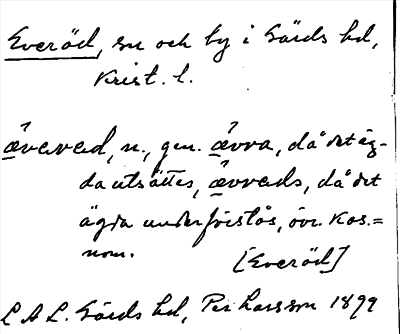 Everöd, sn och by i Gärds hd,
Krist. l.
ævarad, n., gen. ævra, då det äg-
da utsättes, ævrads, då det
ägda underförstås, övr. kas.=
nom.
[Everöd]
L A L. Gärds hd, Per Larsson 1899